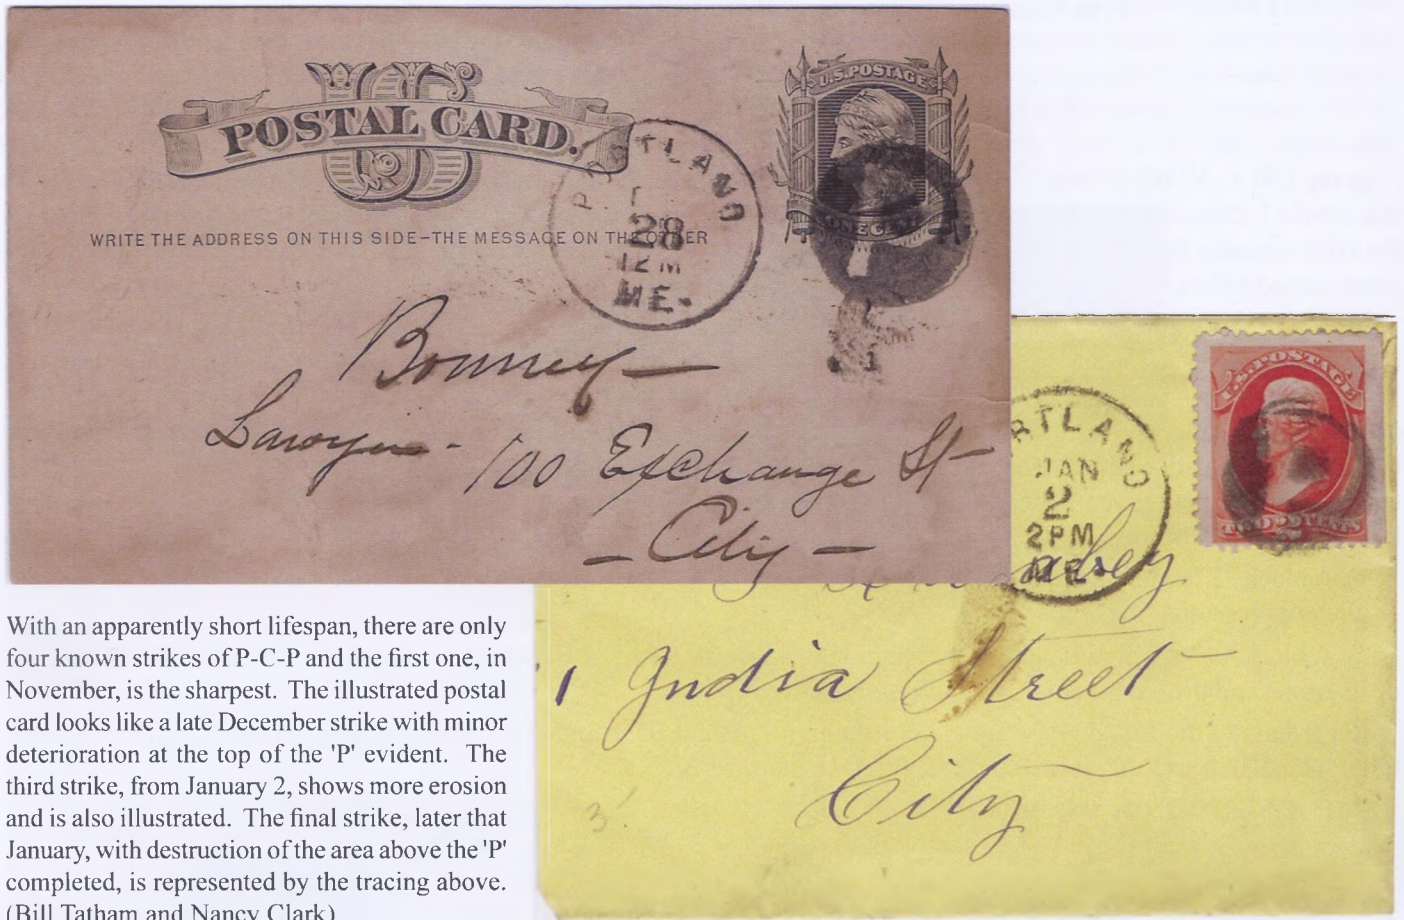 U.S. POSTAGE
US
POSTAL CARD.
PORTLAND
28
12 M
ME.
ONE CENT
WRITE THE ADDRESS ON THIS SIDE–THE MESSAGE ON THE OTHER
Bonney
Lawyer - 100 Exchange St
- City -
U.S. POSTAGE
RTLAND
JAN
2
2PM
ME.
TWO 2 CENTS
1 India Street
City
3
With an apparently short lifespan, there are only
four known strikes of P-C-P and the first one, in
November, is the sharpest. The illustrated postal
card looks like a late December strike with minor
deterioration at the top of the 'P' evident. The
third strike, from January 2, shows more erosion
and is also illustrated. The final strike, later that
January, with destruction of the area above the 'P'
completed, is represented by the tracing above.
(Bill Tatham and Nancy Clark)